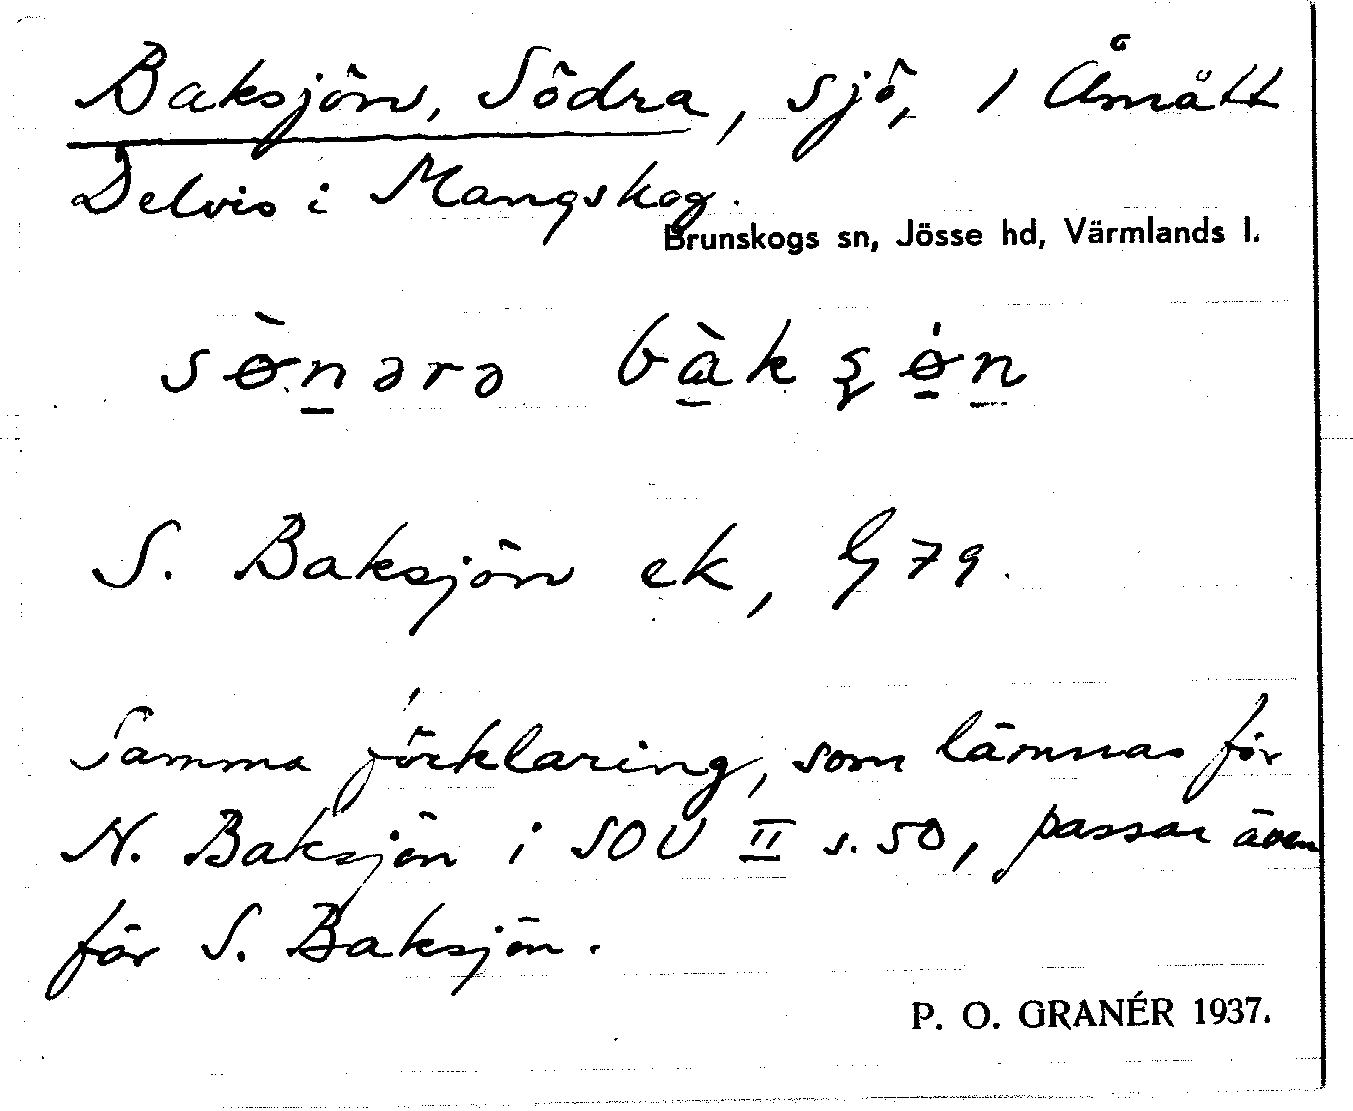 Baksjön, Södra, sjö, 1 Åmått
Delvis i Mangskog.
Brunskogs sn, Jösse hd, Värmlands l.
sø̀nərə bàkʂøn
S. Baksjön ek, G 79.
Samma förklaring, som lämnas för
N. Baksjön i SOV II s. 50, passar även
för S. Baksjön.
P. O. GRANÉR 1937.